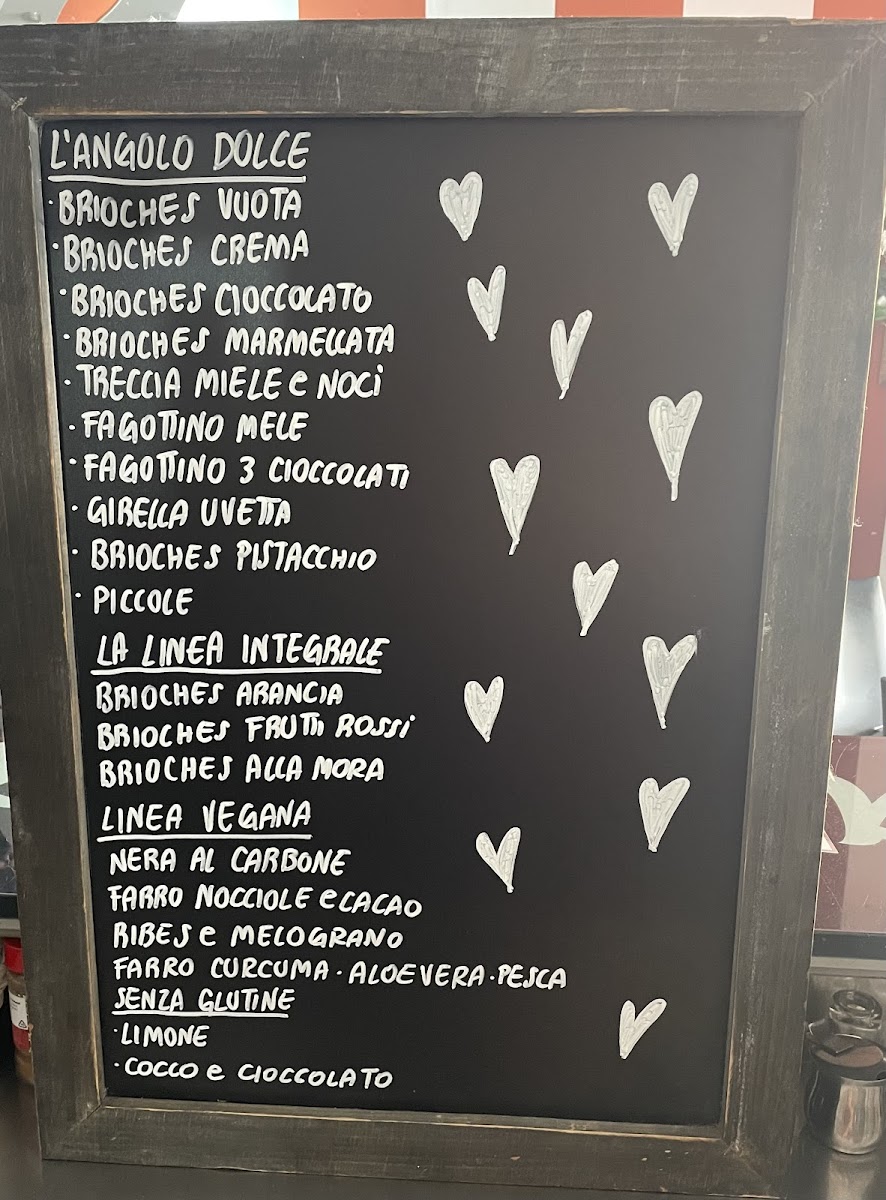 L'ANGOLO DOLCE
· BRIOCHES VUOTA
· BRIOCHES CREMA
· BRIOCHES CIOCCOLATO
· BRIOCHES MARMELLATA
· TRECCIA MIELE e NOCI
· FAGOTTINO MELE
· FAGOTTINO 3 CIOCCOLATI
· GIRELLA UVETTA
· BRIOCHES PISTACCHIO
· PICCOLE
LA LINEA INTEGRALE
BRIOCHES ARANCIA
BRIOCHES FRUTTI ROSSI
BRIOCHES ALLA MORA
LINEA VEGANA
NERA AL CARBONE
FARRO NOCCIOLE e CACAO
RIBES e MELOGRANO
FARRO CURCUMA · ALOE VERA · PESCA
SENZA GLUTINE
· LIMONE
· COCCO e CIOCCOLATO